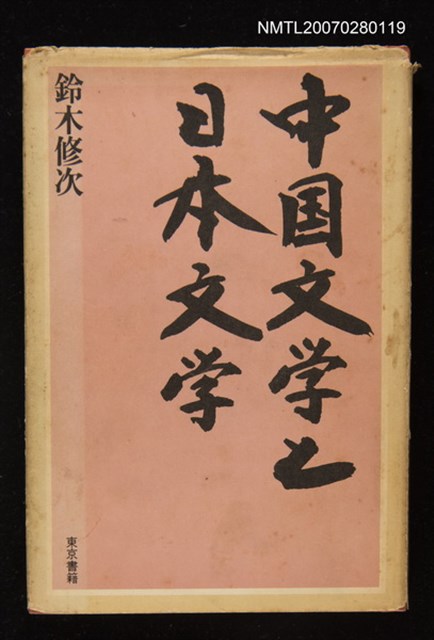 NMTL20070280119
中国文学と
日本文学
鈴木修次
東京書籍